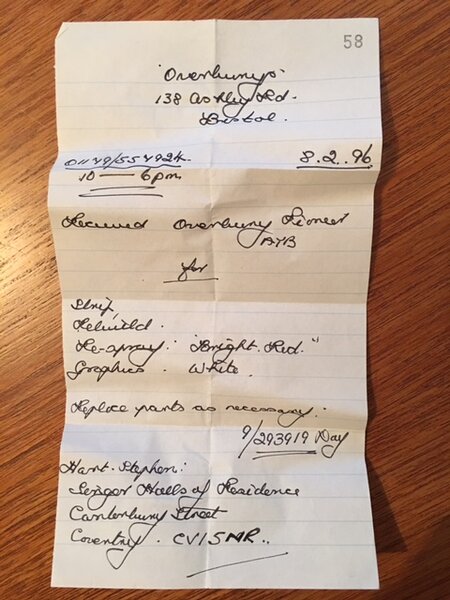 58
"Overburys"
138 Ashley Rd.
Bristol.
8.2.96
10 — 6pm
Received Overbury Pioneer
for
Strip,
Rebuild.
Re-spray: "Bright Red."
Graphics. White.
Replace parts as necessary:
9/293919 Day
Hant. Stephen:
Halls of Residence
Canterbury Street
Coventry. CV1 5NR..